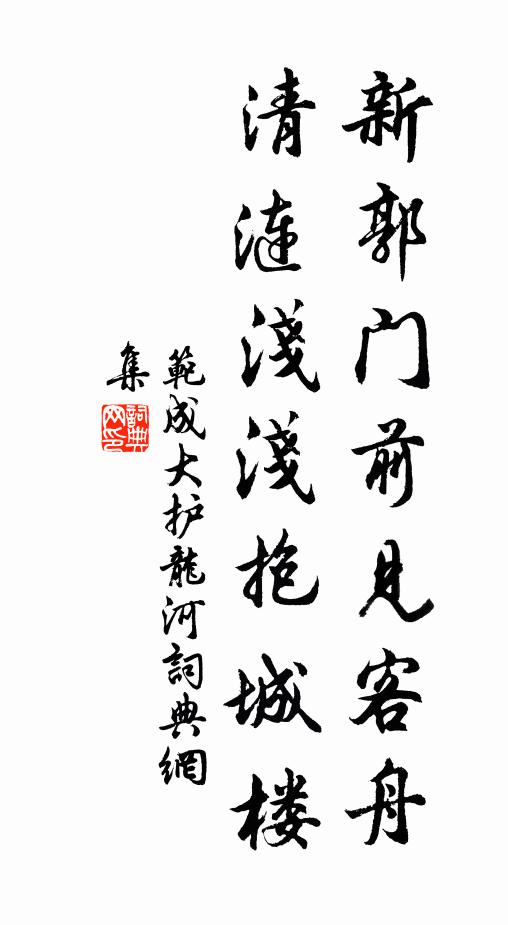 新郭门前見客舟
清漣淺淺抱城楼
範成大护龍河詞典網
集
詞典网印